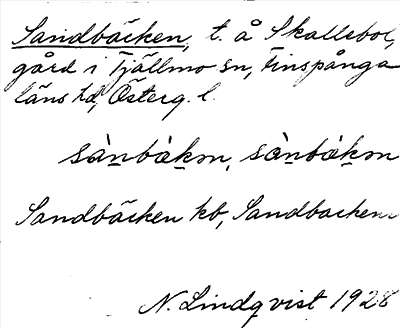 Sandbäcken, t. å Skallebol,
gård i Tjällmo sn, Finspånga
läns hd, Österg. l.
sànbàkən, sànbàkən
Sandbäcken kb, Sandbacken
N. Lindqvist 1928